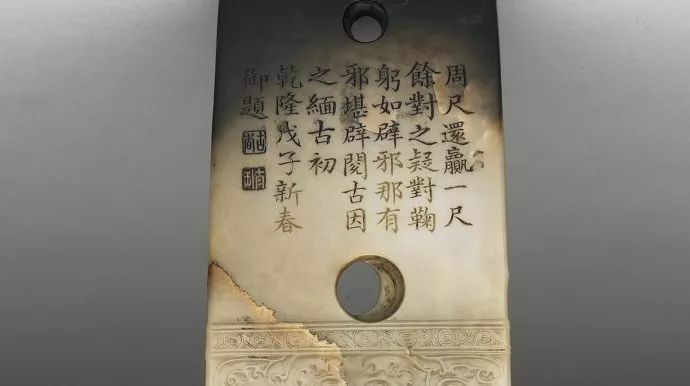 周尺還贏一尺
餘對之疑對鞠
躬如辟邪那有
邪堪辟閱古因
之緬古初
乾隆戊子新春
御題
古香
太玉